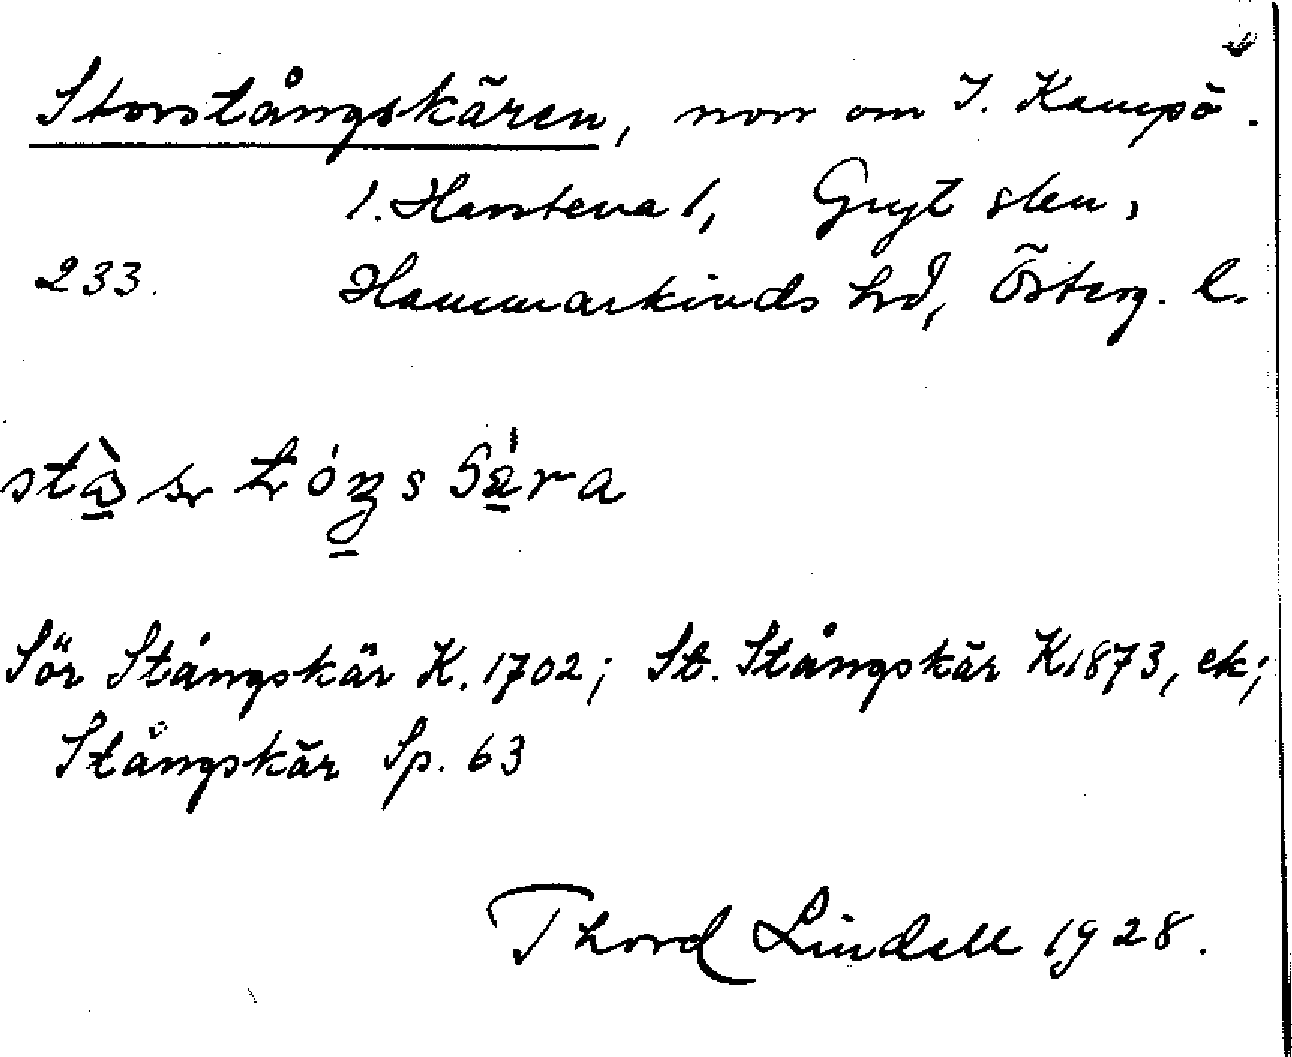 Storstångskären, norr om I. Kampö.
1. Harsteva 1, Gryt skn,
233. Hammarkinds hd, Österg. l.
Sör Stångskär K. 1702; St. Stångskär K 1873, ek;
Stångskär Sp. 63
Thord Lindell 1928.